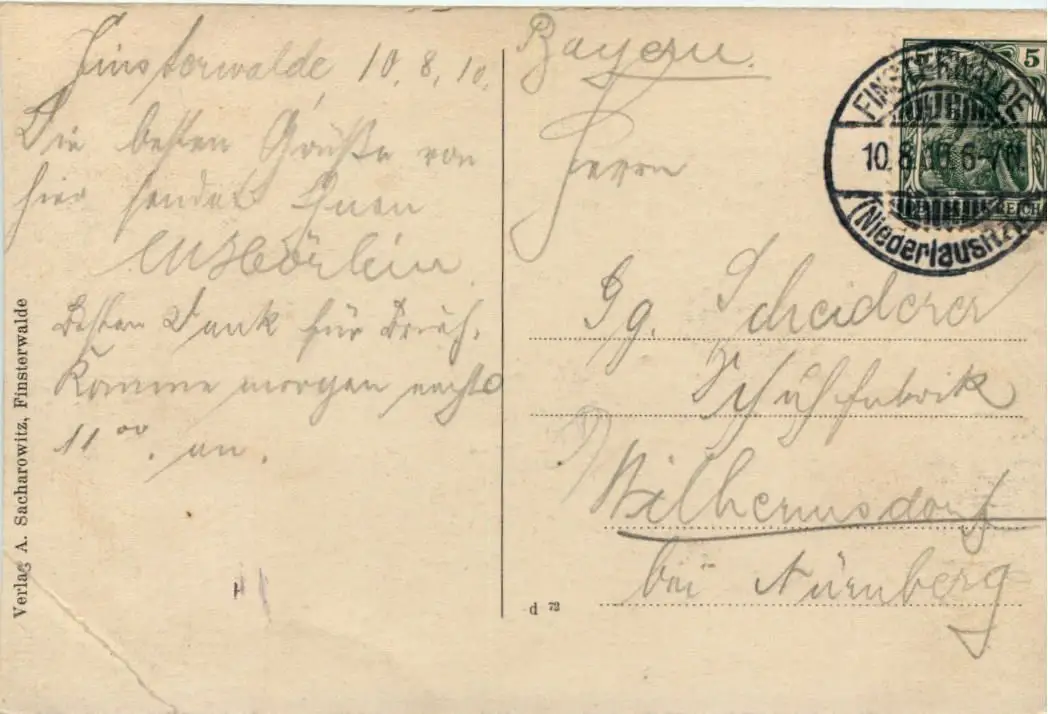 Finsterwalde, 10.8.10.
Die besten Grüße von
hier sendet Ihnen
Besten Dank für
Komme morgen nachts
11 00. an.
Verlag A. Sacharowitz, Finsterwalde
Bayern.
Herrn
Gg. Scheiderer
Schuhfabrik
Wilhermsdorf
bei Nürnberg
d 72
5
REICH
FINSTERWALDE
10.8.10. 6-7N.
(Niederlausitz)